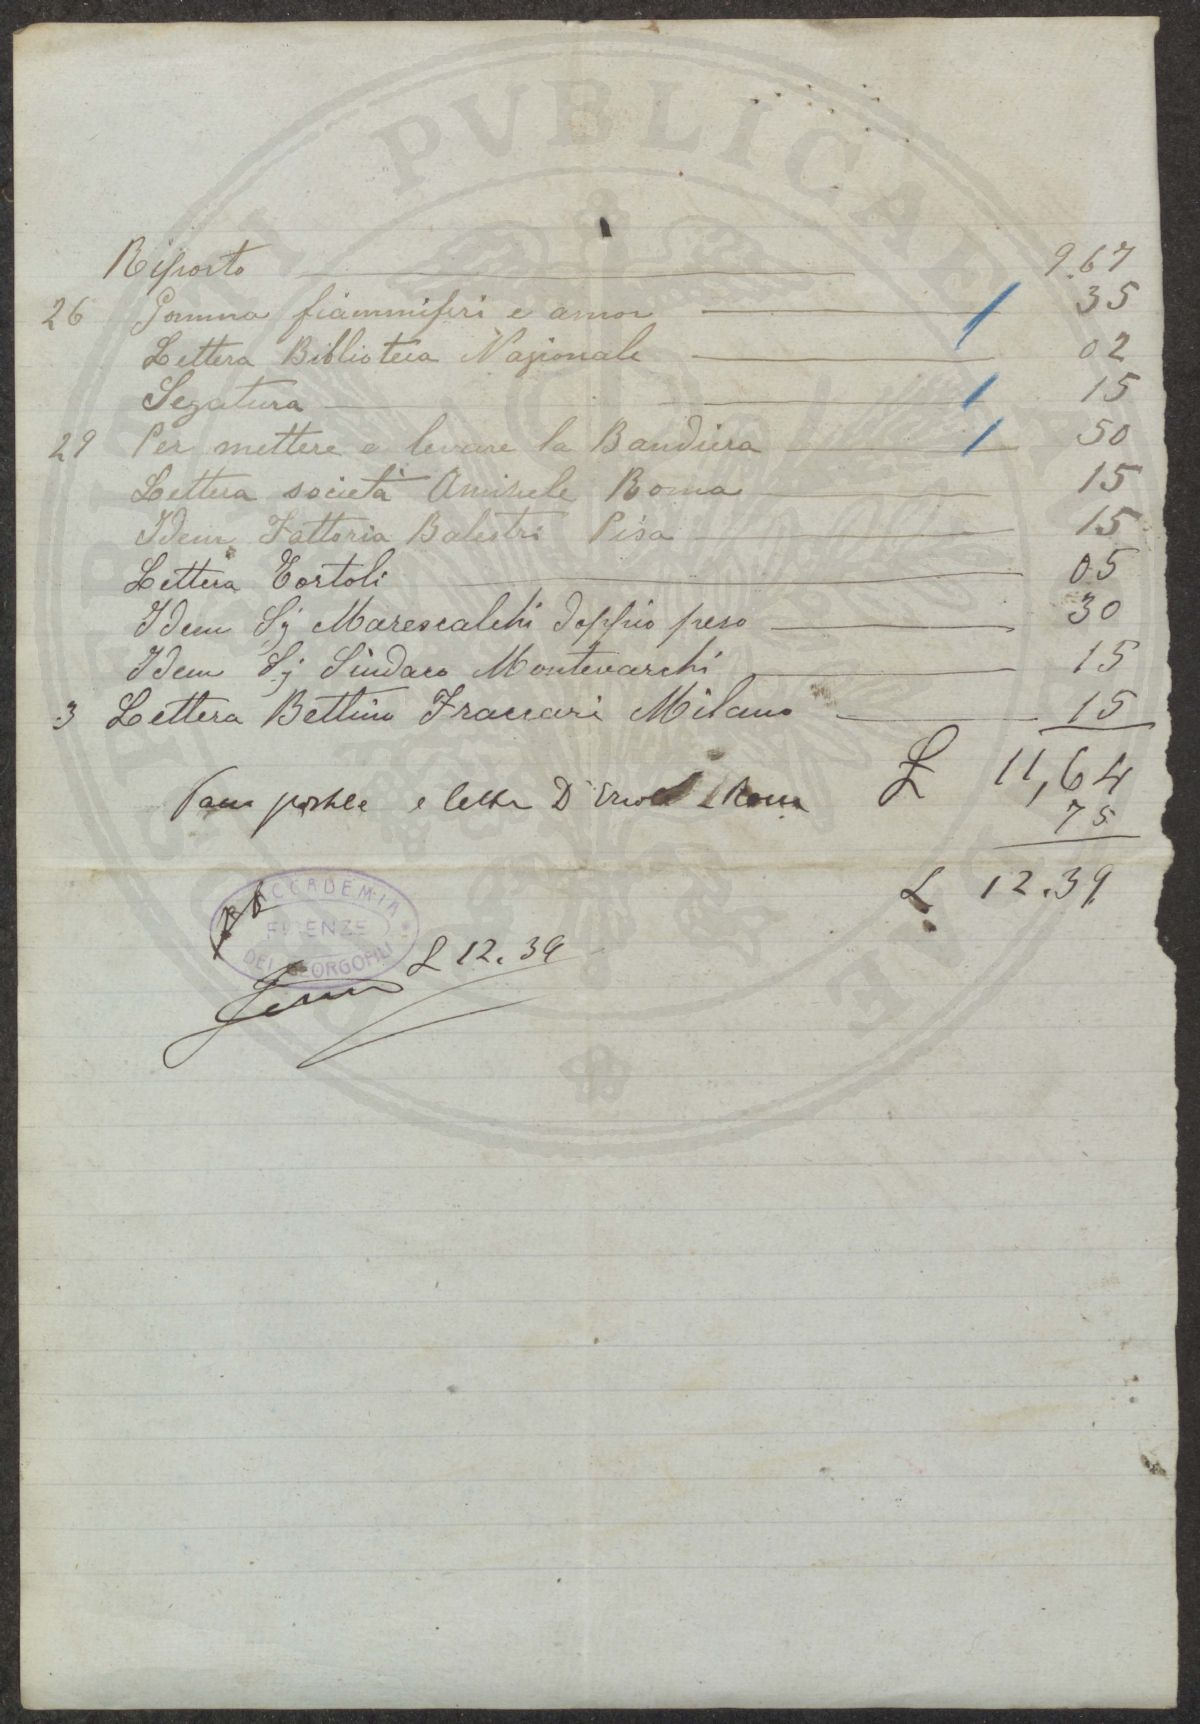 Riporto 9.67
26 Gomma fiammiferi e amor 35
Lettera Biblioteca Nazionale 02
Segatura 15
29 Per mettere e levare la Bandiera 50
Lettera società Roma 15
Idem Fattoria Balestri Pisa 15
Lettera Tortoli 05
Idem Sg Marescalchi doppio peso 30
Idem Sg Sindaco Montevarchi 15
3 Lettera Bettino Fraccari Milano 15
£ 11,64
e Roma 75
£ 12.39
ACCADEMIA
FIRENZE
DEI GEORGOFILI
£ 12.39
PVBLICAE